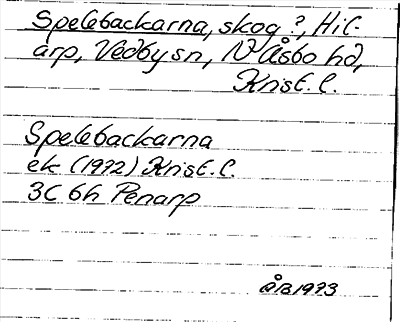 Spelebackarna, skog?, Hil-
arp, Vedby sn, N Åsbo hd,
Krist. l.
Spelebackarna
ek (1972) Krist. l.
3C 6h Penarp
ÅB 1973